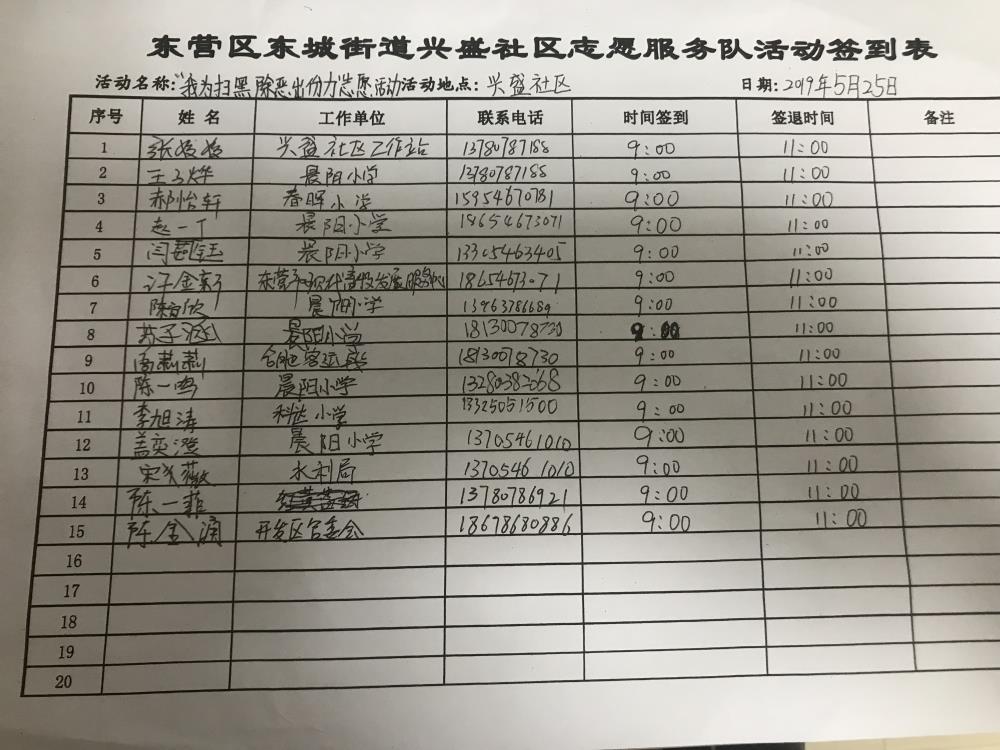 东营区东城街道兴盛社区志愿服务队活动签到表
活动名称:"我为扫黑除恶出份力"志愿活动 活动地点: 兴盛社区 日期: 2019年5月25日
序号 姓名 工作单位 联系电话 时间签到 签退时间 备注
1 张姣姣 兴盛社区工作站 13780787188 9:00 11:00
2 王子烨 晨阳小学 13780787188 9:00 11:00
3 郝怡轩 春晖小学 15954670781 9:00 11:00
4 赵一丁 晨阳小学 18654673071 9:00 11:00
5 闫莉钰 晨阳小学 13305463405 9:00 11:00
6 许金 18654673071 9:00 11:00
7 陈 欣 晨阳小学 13963786689 9:00 11:00
8 苏子涵 晨阳小学 18130078730 9:00 11:00
9 高莉莉 18130078730 9:00 11:00
10 陈一鸣 晨阳小学 13280382068 9:00 11:00
11 李旭涛 科达小学 13325051500 9:00 11:00
12 盖奕澄 晨阳小学 13705461010 9:00 11:00
13 宋 薇 水利局 13705461010 9:00 11:00
14 陈一菲 13780786921 9:00 11:00
15 陈金润 开发区管委会 18678680886 9:00 11:00
16
17
18
19
20